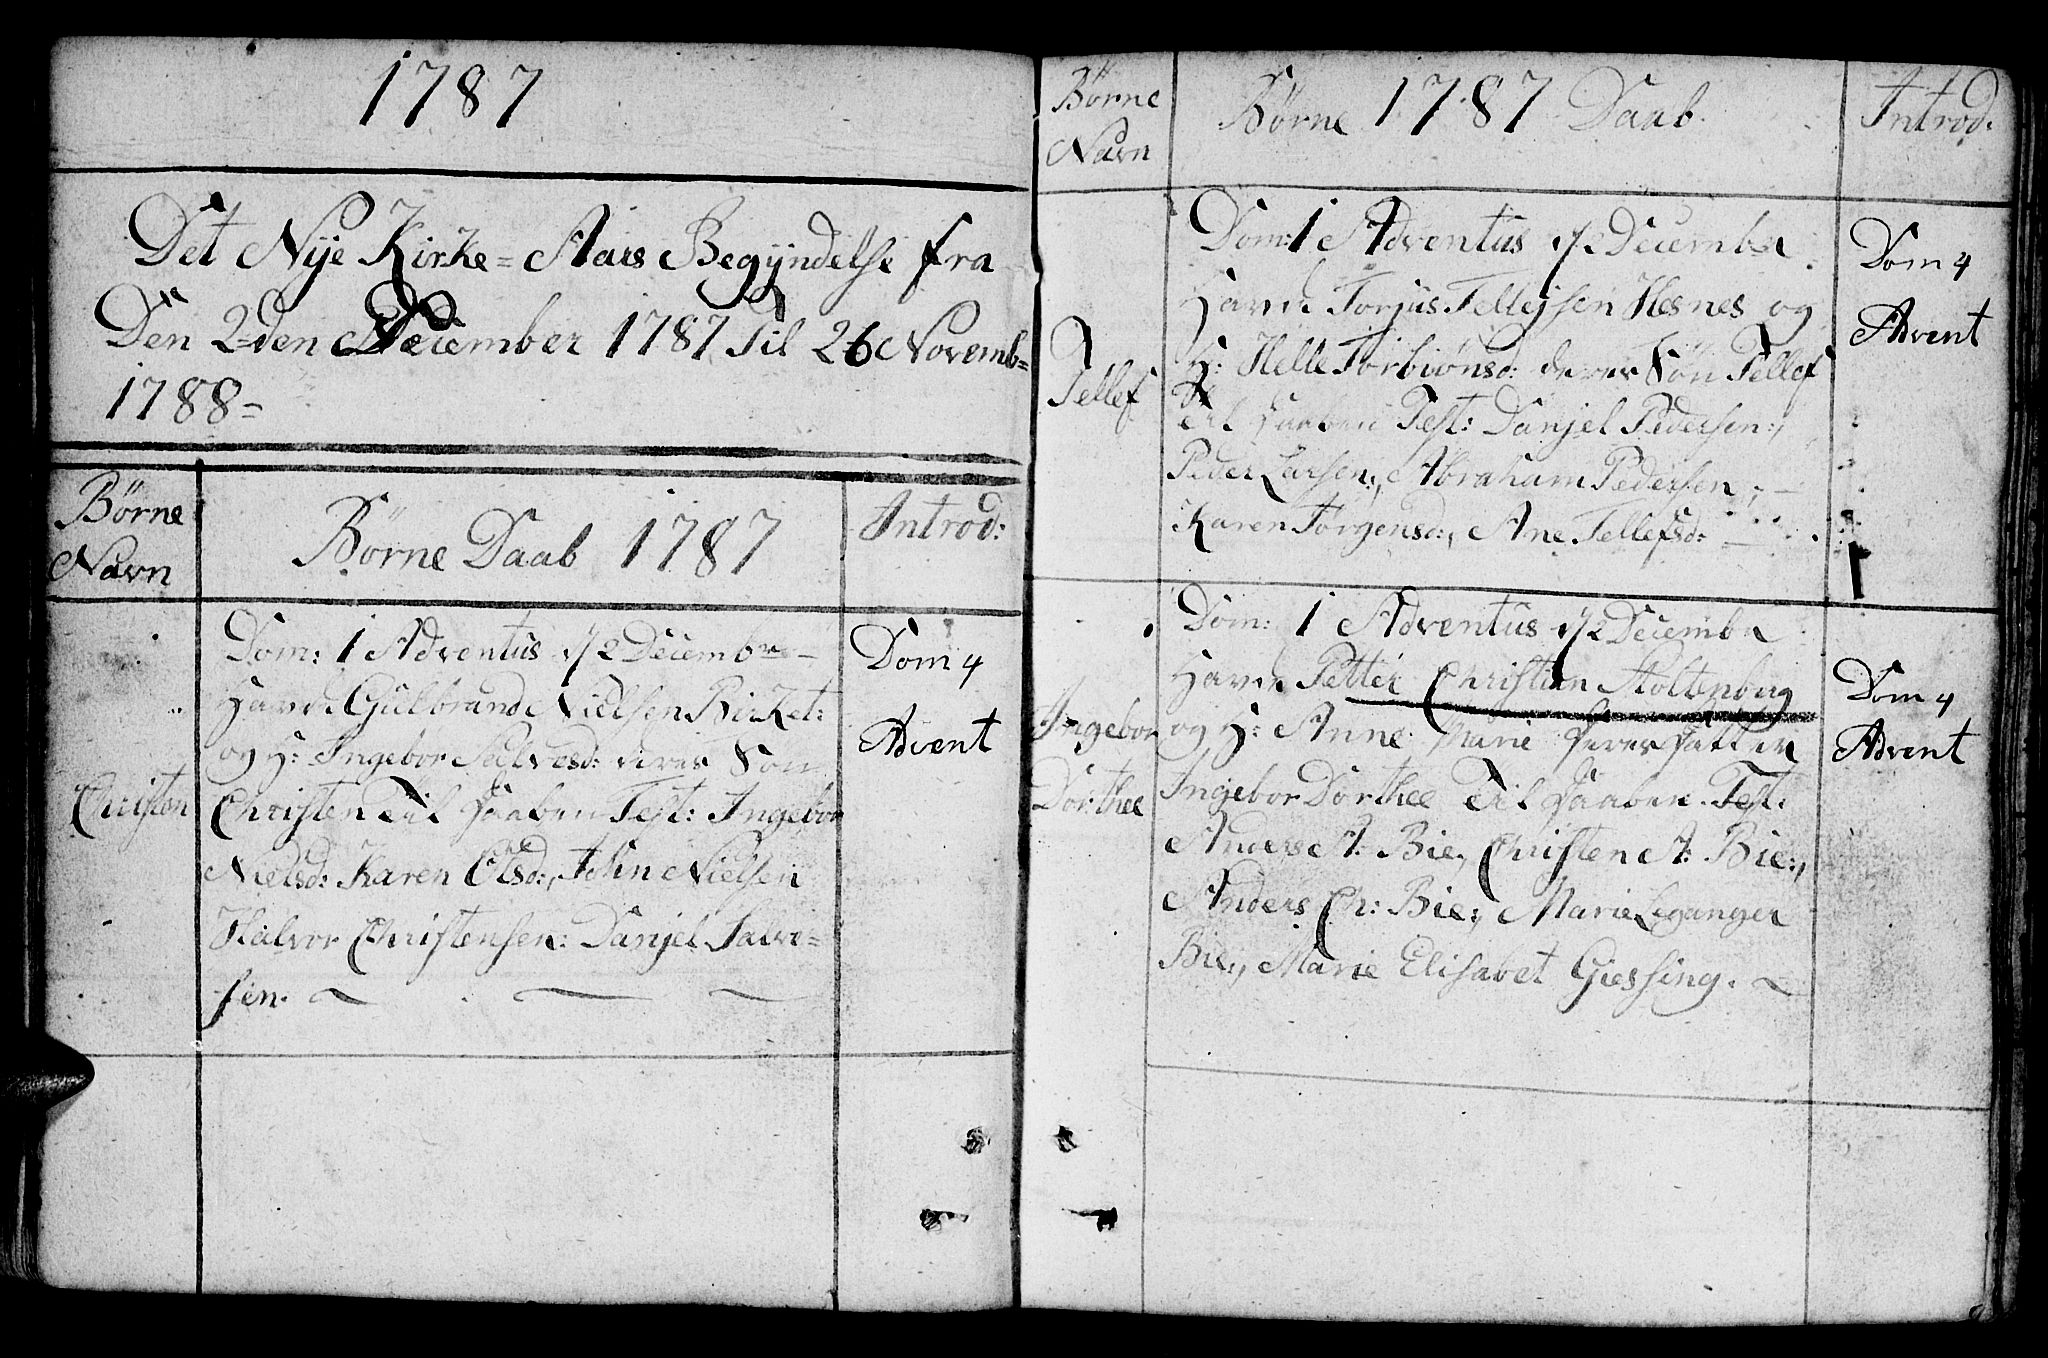 1787
Det Nye Kirke= Aars Begyndelse fra
Den 2den December 1787 Til 26 Novemb=
1788=
Børne
Navn
Børne Daab 1787
Introd:
Christen
Dom: 1 Adventus d/2 Decembr
Havde Gulbrand Nielsen Birket:
og H: Ingebor Salvesd: deres Søn
Christen Til Daaben Test: Ingebor
Nielsd: Karen Olsd:, John Nielsen
Halvor Christensen: Danjel Salve=
sen.
Dom 4
Advent
Børne
Navn
Børne 1787 Daab
Introd:
Tellef
Dom: 1 Adventus d/2 Decembr
Havde Torjus Tellefsen Hesnes og
H: Helle Torbiønsd: deres Søn Tellef
Til Daaben Test: Danjel Pedersen:,
Peder Larsen:, Abraham Pedersen,
Karen Jørgensd:, Ane Tellefsd:
Dom 4
Advent
Ingebor
Dorthee
Dom: 1 Adventus d/2 Decembr
Havde Petter Christian Stoltenberg
og H: Anne Marie deres Datter
Ingebor Dorthee Til Daaben. Test:
Anders A: Bie, Christen A: Bie:,
Anders Ch: Bie:, Marie Leganger
Bie:, Marie Elisabet Giessing.
Dom 4
Advent